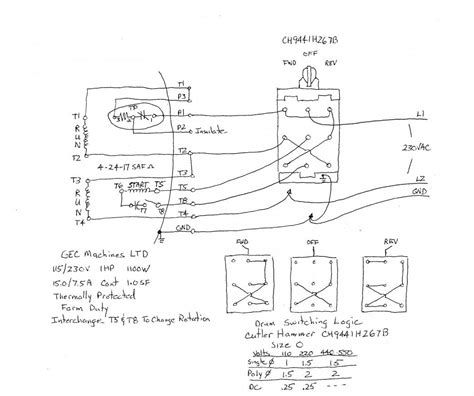 CH9441H267B
OFF
FWD REV
T1
P3
P1
T1
P2 Insulate
RUN
T2
T2
4-24-17 SAF
T3
T3
RUN
T6 START T5 T5
T7 T8
T8
T4
T4
GND
L1
230VAC
L2
GND
GEC Machines LTD
115/230V 1HP 1100W
15.0/7.5A Cont 1.0SF
Thermally Protected
Farm Duty
Interchange T5 & T8 To Change Rotation
FWD OFF REV
Drum Switching Logic
Cutler Hammer CH9441H267B
Size 0
Volts 110 220 440-550
Single Ø 1 1.5 1.5
Poly Ø 1.5 2 2
DC .25 .25 -